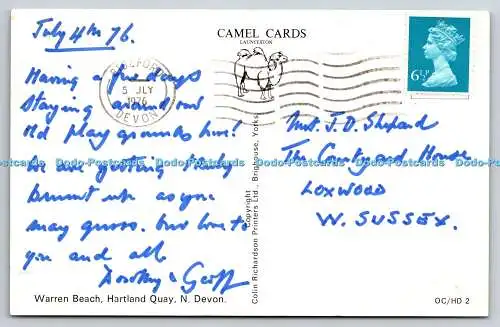 July 4th 76.
CAMEL CARDS
LAUNCESTON
BIDEFORD
5 JLY
1976
DEVON
6½P
Having a few days
staying around our
old play grounds here!
We are getting
burnt up as you
may guess. but love to
you and all
Dorothy & Geoff
J. D. Shepard
The Courtyard House
LOXWOOD
W. SUSSEX.
Dodo-Postcards Dodo-Postcards Dodo-Postcards Dodo-Postcards Dodo-Postcards Dodo-Postcards
Copyright
Colin Richardson Printers Ltd., Brighouse, Yorks.
Warren Beach, Hartland Quay, N. Devon.
OC/HD 2